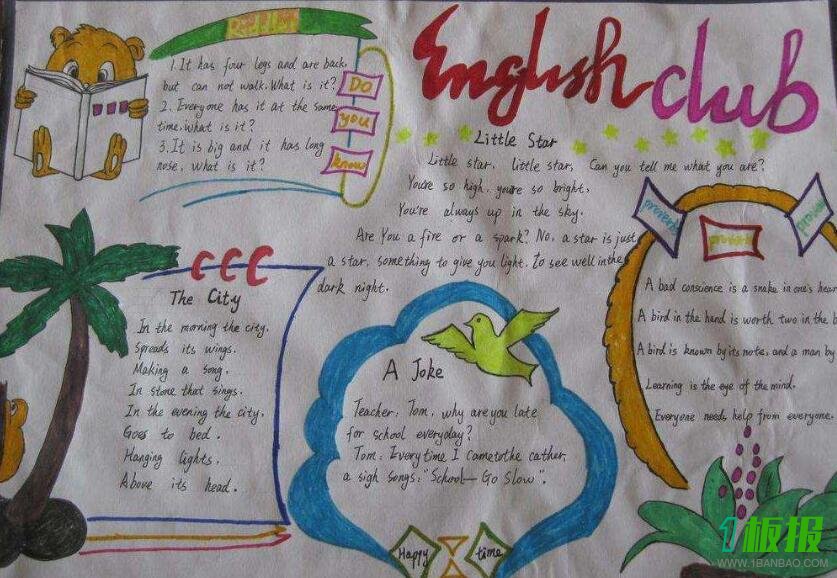 English club
1. It has four legs and are back,
but can not walk. What is it?
2. Everyone has it at the same
time. What is it?
3. It is big and it has long
nose. What is it?
Do
you
know
Little Star
Little star, little star, Can you tell me what you are?
You're so high, you're so bright,
You're always up in the sky.
Are You a fire or a spark? No, a star is just
a star, something to give you light. To see well in the
dark night.
proverb
proverb
A bad conscience is a snake in one's hear
A bird in the hand is worth two in the b
A bird is known by its note, and a man by
Learning is the eye of the mind.
Everyone needs help from everyone.
CCC
The City
In the morning the city.
Spreads its wings.
Making a song.
In stone that sings.
In the evening the city.
Goes to bed.
Hanging lights.
Above its head.
A Joke
Teacher: Tom, why are you late
for school everyday?
Tom: Every time I came to the cather,
a sigh songs: "School—Go Slow".
Happy time
1板报
WWW.1BANBAO.COM